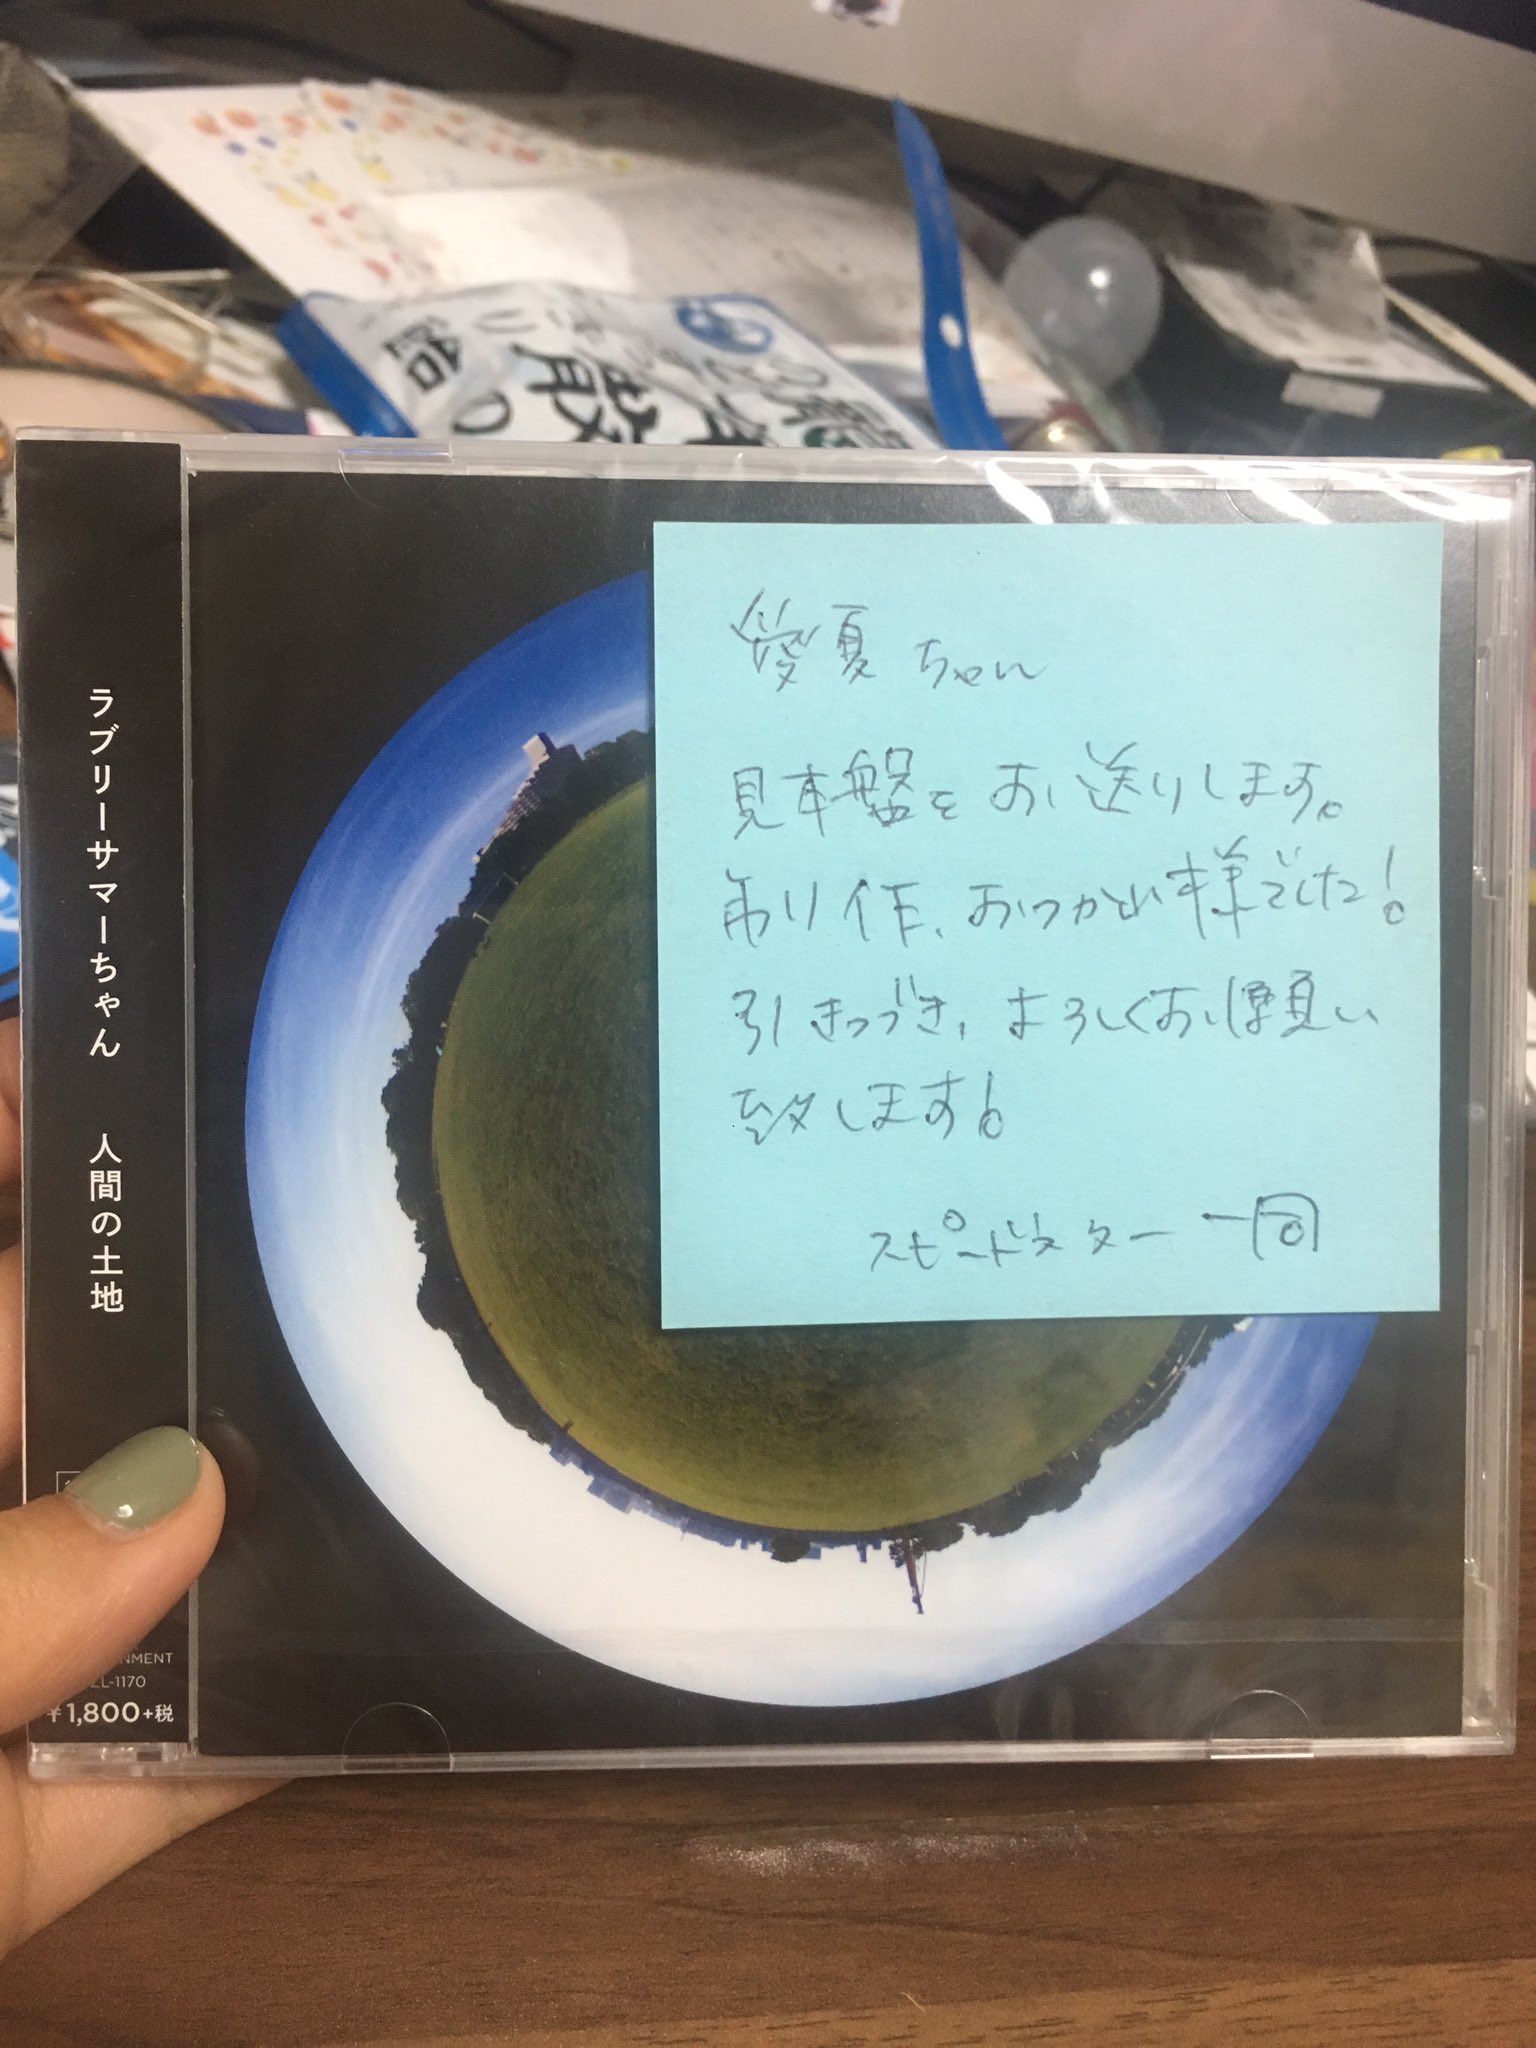 ラブリーサマーちゃん 人間の土地
NMENT
L-1170
¥1,800+税
愛夏ちゃん
見本盤をお送りします。
制作、おつかれ様でした!
引きつづき、よろしくお願い
致します!
スピードスター 一同